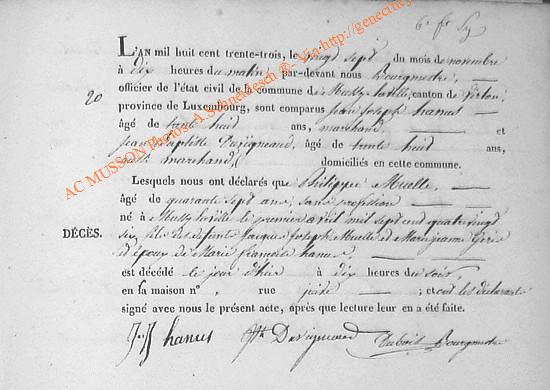 6e ft Sy
L'AN mil huit cent trente-trois, le vingt sept du mois de novembre
à dix heures du matin, par-devant nous Bourgmestre,
20
officier de l'état civil de la commune de Mussy la ville, canton de Virton,
province de Luxembourg, sont comparus jean joseph hanus
âgé de trente huit ans, marchand, et
jean Baptiste Duvigneaud, âgé de trente huit ans,
marchand, domiciliés en cette commune.
Lesquels nous ont déclarés que Philippe Mualle,
âgé de quarante sept ans, sans profession
né à Mussy la ville le premier avril mil sept cent quatre vingt
DÉCÈS.
six fils des defunts Jacques Joseph Mualle et Marie jeanne
et époux de Marie françoise hanus,
est décédé le jour d'hier à dix heures du soir,
en sa maison n° , rue ; et ont les déclarants
signé avec nous le présent acte, après que lecture leur en a été faite.
J J hanus Duvigneaud Dubois Bourgmestre
AC MUSSON Photos A. Schneidesch ®- Via http://geneciney